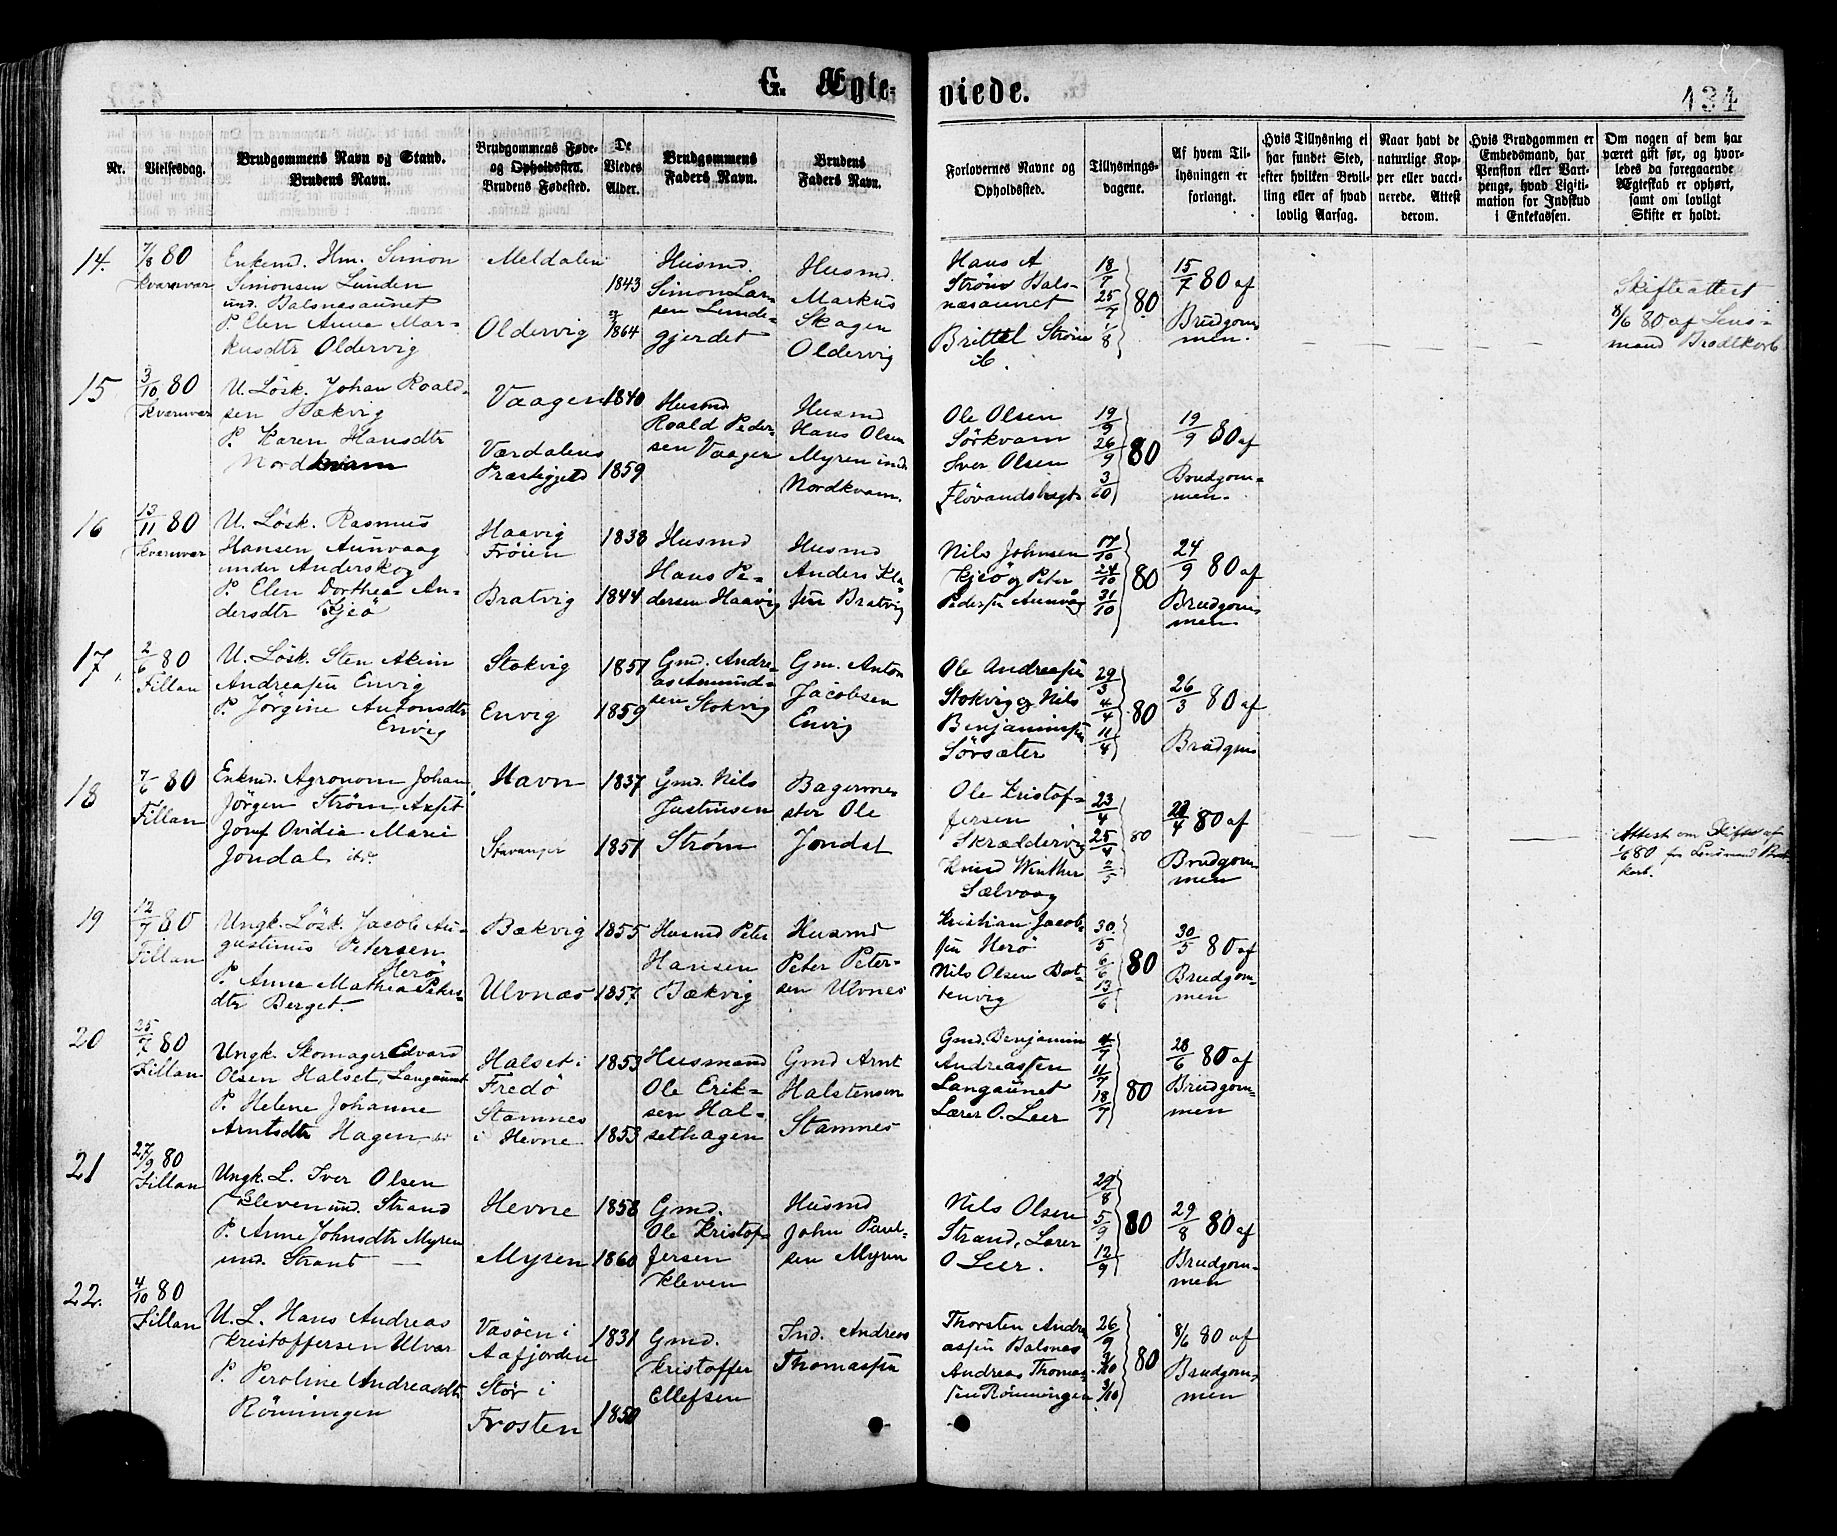 G. Ægte-
viede.
434
Nr.
Vielsesdag.
Brudgommens Navn og Stand.
Brudens Navn.
Brudgommens Føde-
og Opholdssted.
Brudens Fødested.
De
Viedes
Alder.
Brudgommens
Faders Navn.
Brudens
Faders Navn.
Forlovernes Navne og
Opholdssted.
Tillysnings-
dagene.
Af hvem Til-
lysningen er
forlangt.
Hvis Tillysning ei
har fundet Sted,
efter hvilken Bevil-
ling eller af hvad
lovlig Aarsag.
Naar havt de
naturlige Kop-
per eller vacci-
nerede. Attest
derom.
Hvis Brudgommen er
Embedsmand, har
Pension eller Vart-
penge, hvad Ligiti-
mation for Indskud
i Enkekassen.
Om nogen af dem har
været gift før, og hvor-
ledes da foregaaende
Ægteskab er ophørt,
samt om lovligt
Skifte er holdt.
14.
7/8 80
Kvænvær
Enkemd. Hm. Simon
Simonsen Lunden
und. Balsnesaunet
P. Elen Anna Mar-
kusdtr Oldervig
Meldalen
Oldervig
1843
1864
Husmd.
Simon Lar-
sen Lunde-
gjerdet
Husmd.
Markus
Skagen
Oldervig
Hans A
Strøm Bals-
næsaunet
Brittel Strøm
18/7
25/7
1/8
80
15/7 80 af
Brudgom
men.
Skifteattest
8/6 80 af Lens-
mand Brodtkorb
15
3/10 80
Kvænvær
U. Løsk. Johan Roald-
sen Bækvig
P. Karen Hansdtr
Nordkvam
Vaagen
Værdalens
Præstegjeld
1840
1859
Husmd
Roald Peder-
sen Vaagen
Husmd
Hans Olsen
Myren und.
Nordkvam.
Ole Olsen
Sörkvam
Iver Olsen
19/9
26/9
3/10
80
19/9 80 af
Brudgom-
men.
16
13/11 80
Kvænvær
U. Løsk. Rasmus
Hansen Aunvaag
under Anderskog
P. Elen Dorthea An-
dersdtr Kjeö
Haavig
Frøien
Bratvig
1838
1844
Husmd
Hans Pe-
dersen Haavig
Husmd
Anders Kla
sen Bratvig
Nils Johnsen
Kjeö og Peter
Pedersen Aunvåg
17/10
24/10
31/10
80
24/9 80 af
Brudgom
men
17.
2/6 80
Fillan
U. Løsk. Sten Akim
Andreassen Envig
P. Jörgine Antonsdtr
Envig
Stokvig
Envig
1857
1859
Gmd. Andre-
as Amund-
sen Stokvig
Gm. Anton
Jacobsen
Envig
Ole Andreassen
Stokvig og Nils
Benjaminsen
Sörsæter
29/3
4/4
11/4
80
26/3 80 af
Brudgm
18
7/6 80
Fillan
Enkmd. Agronom Johan
Jörgen Strøm,
Josef Ovidia Marie
Jöndal
Havn
Stavanger
1837
1851
Gmd. Nils
Justinsen
Strøm
Bagermes
ster Ole
Jöndal
Ole Kristof-
fersen
Skrældervig
Knud Winther
Sælvaag
23/4
25/4
2/5
80
22/4 80 af
Brudgom
men
Attest om Skifte af
1/6 80 fra Lensmand Brodt
korb.
19
12/7 80
Fillan
Ungk. Løsk. Jacob Au-
gustinus Petersen
Herö
P. Anna Mathea Peters-
dtr Berget.
Bækvig
Ulvnæs
1855
1857
Husmd Peter
Hansen
Bækvig
Husmd
Peter Peter-
sen Ulvnes
Kristian Jacob-
sen Herö
Nils Olsen Bot-
tenvig
30/5
6/6
13/6
80
30/5 80 af
Brudgom-
men
20
25/7 80
Fillan
Ungk. Skomager Edvard
Olsen Halset, Langaunet
P. Helene Johanne
Arntsdtr Hagen
Halset i
Fredö
Stamnes
i Hevne
1853
1853
Husmand
Ole Erik-
sen Hal-
sethagen
Gmd Arnt
Halstensen
Stamnes
Gmd. Benjamin
Andreassen
Langaunet
Lærer O. Leer
4/7
11/7
18/7
80
28/6 80 af
Brudgom-
men
21
27/9 80
Fillan
Ungk. L. Iver Olsen
Kleven und. Strand
P. Anne Johnsdtr Myren
und. Strand
Hevne
Myren
1858
1860
Gmd.
Ole Kristof-
fersen
Kleven
Husmd
John Paul-
sen Myren
Nils Olsen
Strand, Lærer
O Leer.
29/8
5/9
12/9
80
29/8 80 af
Brudgom-
men
22.
4/10 80
Fillan
U. L. Hans Andreas
Kristoffersen Ulvær
P. Peroline Andreasdtr
Rönningen
Vasöen i
Aafjorden
Stör i
Frosten
1831
1850
Gmd.
Kristoffer
Ellefsen
Ind. Andreas
Thomassen
Thorsten Andre
assen Balsnes
Andreas Thomas-
sen Rönningen
26/9
3/10
3/10
80
8/6 80 af
Brudgom-
men